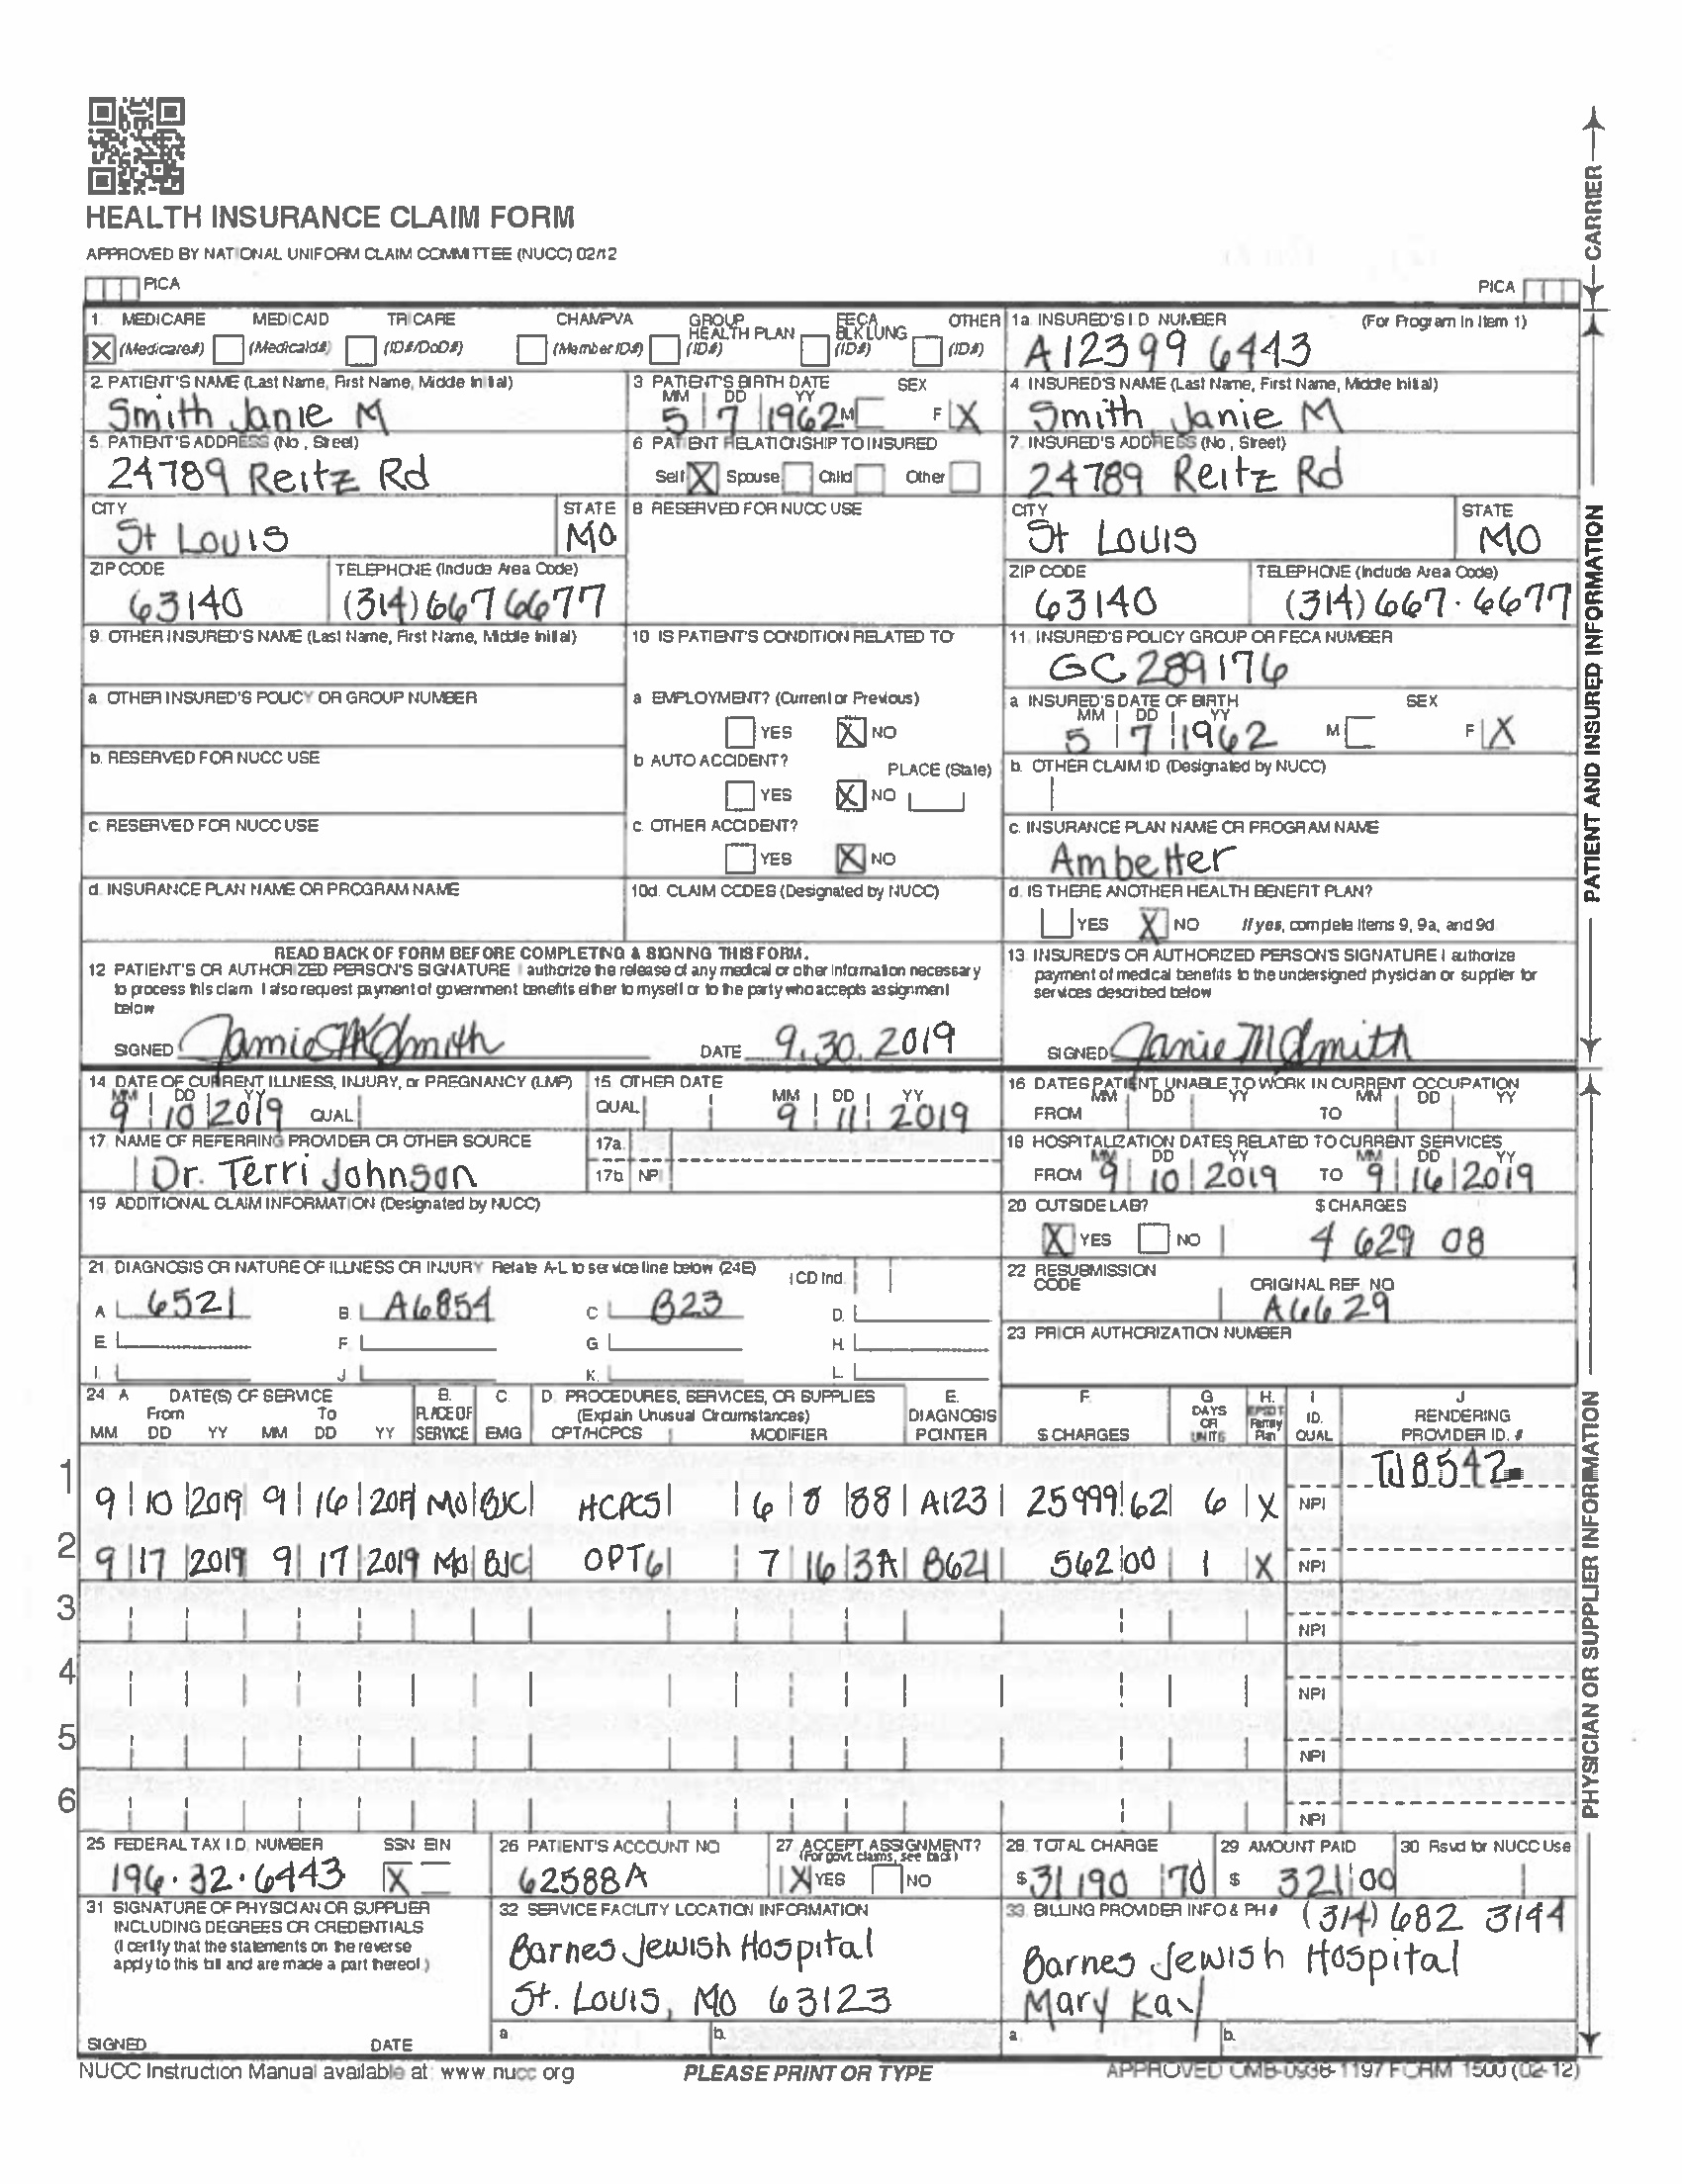 HEALTH INSURANCE CLAIM FORM
APPROVED BY NATIONAL UNIFORM CLAIM COMMITTEE (NUCC) 02/12
PICA PICA
CARRIER
1. MEDICARE MEDICAID TRICARE CHAMPVA GROUP HEALTH PLAN FECA BLK LUNG OTHER
X (Medicare#) (Medicaid#) (ID#/DoD#) (Member ID#) (ID#) (ID#) (ID#)
1a. INSURED'S I.D. NUMBER (For Program in Item 1)
A12399 6443
2. PATIENT'S NAME (Last Name, First Name, Middle Initial)
Smith Janie M
3 PATIENT'S BIRTH DATE SEX
MM DD YY
5 7 1962 M F X
4. INSURED'S NAME (Last Name, First Name, Middle Initial)
Smith Janie M
5. PATIENT'S ADDRESS (No., Street)
24789 Reitz Rd
6 PATIENT RELATIONSHIP TO INSURED
Self X Spouse Child Other
7. INSURED'S ADDRESS (No., Street)
24789 Reitz Rd
CITY STATE
St Louis MO
8 RESERVED FOR NUCC USE
CITY STATE
St Louis MO
ZIP CODE TELEPHONE (Include Area Code)
63140 (314) 667 6677
ZIP CODE TELEPHONE (Include Area Code)
63140 (314) 667.6677
9. OTHER INSURED'S NAME (Last Name, First Name, Middle Initial)
10 IS PATIENT'S CONDITION RELATED TO
11. INSURED'S POLICY GROUP OR FECA NUMBER
GC 289176
a OTHER INSURED'S POLICY OR GROUP NUMBER
a EMPLOYMENT? (Current or Previous)
YES X NO
a INSURED'S DATE OF BIRTH SEX
MM DD YY
5 7 1962 M F X
b. RESERVED FOR NUCC USE
b AUTO ACCIDENT? PLACE (State)
YES X NO
b. OTHER CLAIM ID (Designated by NUCC)
c. RESERVED FOR NUCC USE
c. OTHER ACCIDENT?
YES X NO
c. INSURANCE PLAN NAME OR PROGRAM NAME
Ambetter
d. INSURANCE PLAN NAME OR PROGRAM NAME
10d. CLAIM CODES (Designated by NUCC)
d. IS THERE ANOTHER HEALTH BENEFIT PLAN?
YES X NO If yes, complete items 9, 9a, and 9d
PATIENT AND INSURED INFORMATION
READ BACK OF FORM BEFORE COMPLETING & SIGNING THIS FORM.
12 PATIENT'S OR AUTHORIZED PERSON'S SIGNATURE I authorize the release of any medical or other information necessary
to process this claim I also request payment of government benefits either to myself or to the party who accepts assignment
below
SIGNED DATE 9.30.2019
13. INSURED'S OR AUTHORIZED PERSON'S SIGNATURE I authorize
payment of medical benefits to the undersigned physician or supplier for
services described below
SIGNED Janie M Smith
14. DATE OF CURRENT ILLNESS, INJURY, or PREGNANCY (LMP)
MM DD YY
9 10 2019 QUAL
15. OTHER DATE
QUAL MM DD YY
9 11 2019
16 DATES PATIENT UNABLE TO WORK IN CURRENT OCCUPATION
MM DD YY MM DD YY
FROM TO
17. NAME OF REFERRING PROVIDER OR OTHER SOURCE
Dr. Terri Johnson
17a.
17b NPI
18 HOSPITALIZATION DATES RELATED TO CURRENT SERVICES
MM DD YY MM DD YY
FROM 9 10 2019 TO 9 16 2019
19 ADDITIONAL CLAIM INFORMATION (Designated by NUCC)
20 OUTSIDE LAB? $ CHARGES
X YES NO 4 629 08
21. DIAGNOSIS OR NATURE OF ILLNESS OR INJURY Relate A-L to service line below (24E) ICD Ind.
A 6521 B. A6854 C B23 D.
E. F. G H.
I. J K. L.
22 RESUBMISSION CODE ORIGINAL REF. NO
A6629
23 PRIOR AUTHORIZATION NUMBER
24. A DATE(S) OF SERVICE B. PLACE OF SERVICE C. EMG D. PROCEDURES, SERVICES, OR SUPPLIES E. DIAGNOSIS POINTER F. $ CHARGES G DAYS OR UNITS H. EPSDT Family Plan I ID. QUAL J RENDERING PROVIDER ID. #
From To (Explain Unusual Circumstances)
MM DD YY MM DD YY CPT/HCPCS MODIFIER
1 TJ8542
9 10 2019 9 16 2019 MO BJC HCPCS 6 8 88 A123 25999 62 6 X NPI
2 9 17 2019 9 17 2019 MO BJC OPT6 7 16 3A B621 562 00 1 X NPI
3 NPI
4 NPI
5 NPI
6 NPI
PHYSICIAN OR SUPPLIER INFORMATION
25 FEDERAL TAX I.D. NUMBER SSN EIN
196.32.6443 X
26 PATIENT'S ACCOUNT NO
62588A
27. ACCEPT ASSIGNMENT?
(For govt. claims, see back)
X YES NO
28. TOTAL CHARGE
$ 31 190 70
29 AMOUNT PAID
$ 321 00
30 Rsvd for NUCC Use
31 SIGNATURE OF PHYSICIAN OR SUPPLIER
INCLUDING DEGREES OR CREDENTIALS
(I certify that the statements on the reverse
apply to this bill and are made a part thereof.)
SIGNED DATE
32 SERVICE FACILITY LOCATION INFORMATION
Barnes Jewish Hospital
St. Louis, MO 63123
a. b.
33. BILLING PROVIDER INFO & PH # (314) 682 3144
Barnes Jewish Hospital
Mary Kay
a. b.
NUCC Instruction Manual available at: www.nucc.org PLEASE PRINT OR TYPE APPROVED OMB-0938-1197 FORM 1500 (02-12)